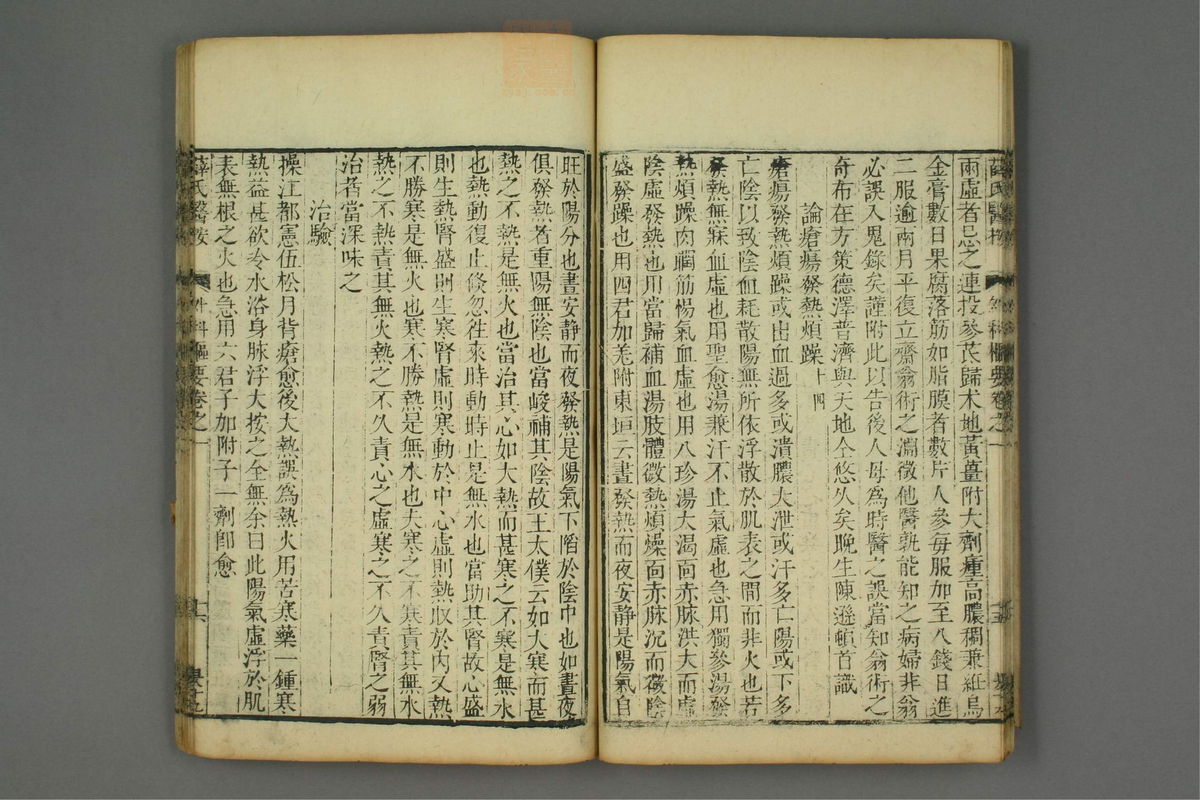 薛氏醫按 外科樞要卷之一
兩虛者忌之連投參芪歸术地黃薑附大劑瘇高膿稠兼紝烏
金膏數日果腐落筋如脂膜者數片人參每服加至八錢日進
二服逾兩月平復立齋翁術之淵微他醫孰能知之病婦非翁
必誤入鬼錄矣謹附此以告後人毋爲時醫之誤當知翁術之
奇布在方策德澤普濟與天地仝悠久矣晚生陳遜頓首識
論瘡瘍發熱煩躁 十四
瘡瘍發熱煩躁或出血過多或潰膿大泄或汗多亡陽或下多
亡陰以致陰血耗散陽無所依浮散於肌表之間而非火也若
發熱無寐血虛也用聖愈湯兼汗不止氣虛也急用獨參湯發
熱煩躁肉瞤筋惕氣血虛也用八珍湯大渴面赤脉洪大而虛
陰虛發熱也用當歸補血湯肢體微熱煩燥面赤脉沉而微陰
盛發躁也用四君加羌附東垣云晝發熱而夜安静是陽氣自
旺於陽分也晝安静而夜發熱是陽氣下陷於陰中也如晝夜
俱發熱者重陽無陰也當峻補其陰故王太僕云如大寒而甚
熱之不熱是無火也當治其心如大熱而甚寒之不寒是無水
也熱動復止倐忽徃來時動時止是無水也當助其腎故心盛
則生熱腎盛則生寒腎虛則寒動於中心虛則熱收於内又熱
不勝寒是無火也寒不勝熱是無水也大寒之不寒責其無水
熱之不熱責其無火熱之不久責心之虛寒之不久責腎之弱
治者當深味之
治驗
操江都憲伍松月背瘡愈後大熱誤爲熱火用苦寒藥一鍾寒
熱益甚欲冷水浴身脉浮大按之全無余曰此陽氣虛浮於肌
表無根之火也急用六君子加附子一劑卽愈
薛氏醫按 外科樞要卷之一